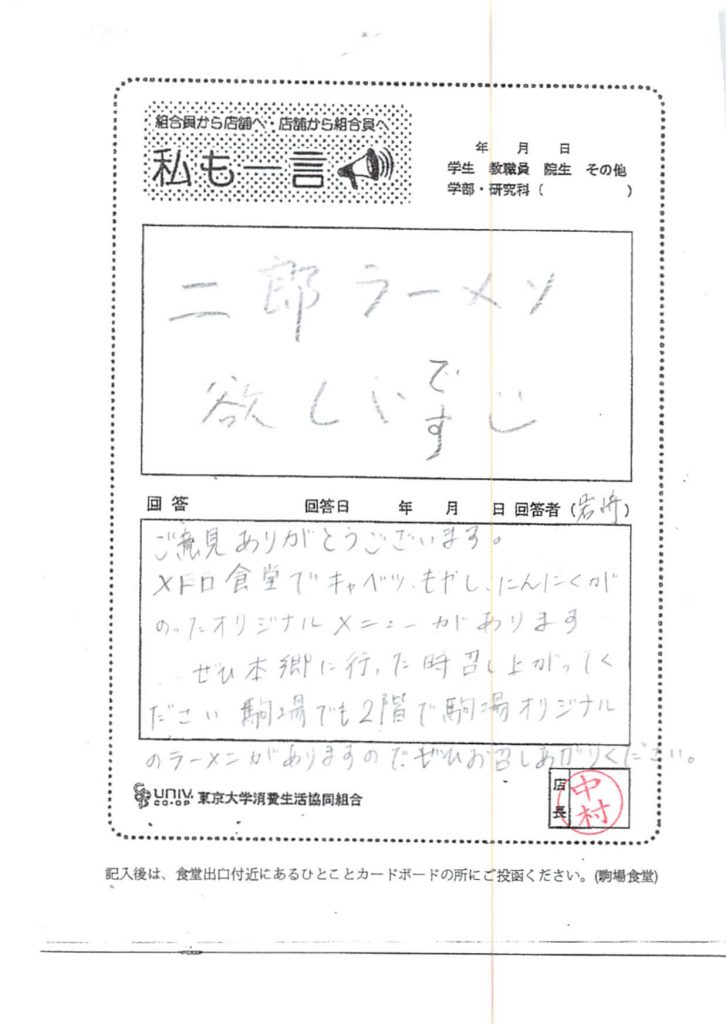 組合員から店舗へ・店舗から組合員へ
私も一言
年 月 日
学生 教職員 院生 その他
学部・研究科 ( )
二郎ラーメン
欲しいですじ
回答 回答日 年 月 日 回答者 (岩崎)
ご意見ありがとうございます。
メトロ食堂でキャベツ、もやし、にんにくが
のったオリジナルメニューがあります
ぜひ本郷に行った時召し上がってく
ださい 駒場でも2階で駒場オリジナル
のラーメンがありますのでぜひお召しあがりください。
UNIV. CO-OP 東京大学消費生活協同組合
店長 中村
記入後は、食堂出口付近にあるひとことカードボードの所にご投函ください。(駒場食堂)